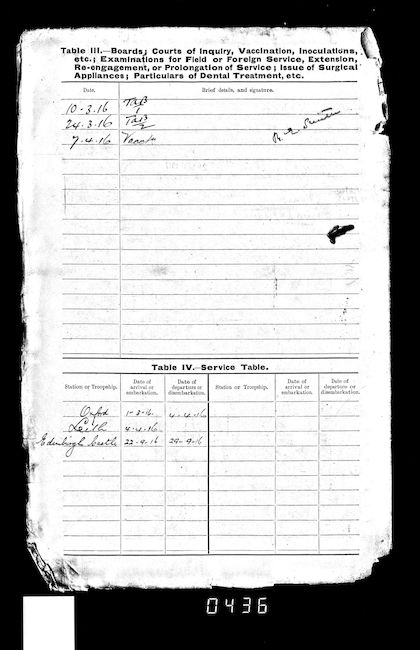 Table III.—Boards; Courts of Inquiry, Vaccination, Inoculations,
etc.; Examinations for Field or Foreign Service, Extension,
Re-engagement, or Prolongation of Service; Issue of Surgical
Appliances; Particulars of Dental Treatment, etc.
Date. Brief details, and signature.
10-3.16 TAB 1
24.3.16 TAB 2
7.4.16
Table IV.—Service Table.
Station or Troopship. Date of arrival or embarkation. Date of departure or disembarkation. Station or Troopship. Date of arrival or embarkation. Date of departure or disembarkation.
Oxford 1-3-16. 4-4-16
Leith 4-4-16.
Edinburgh Castle 22-9-16 29-9-16
0436